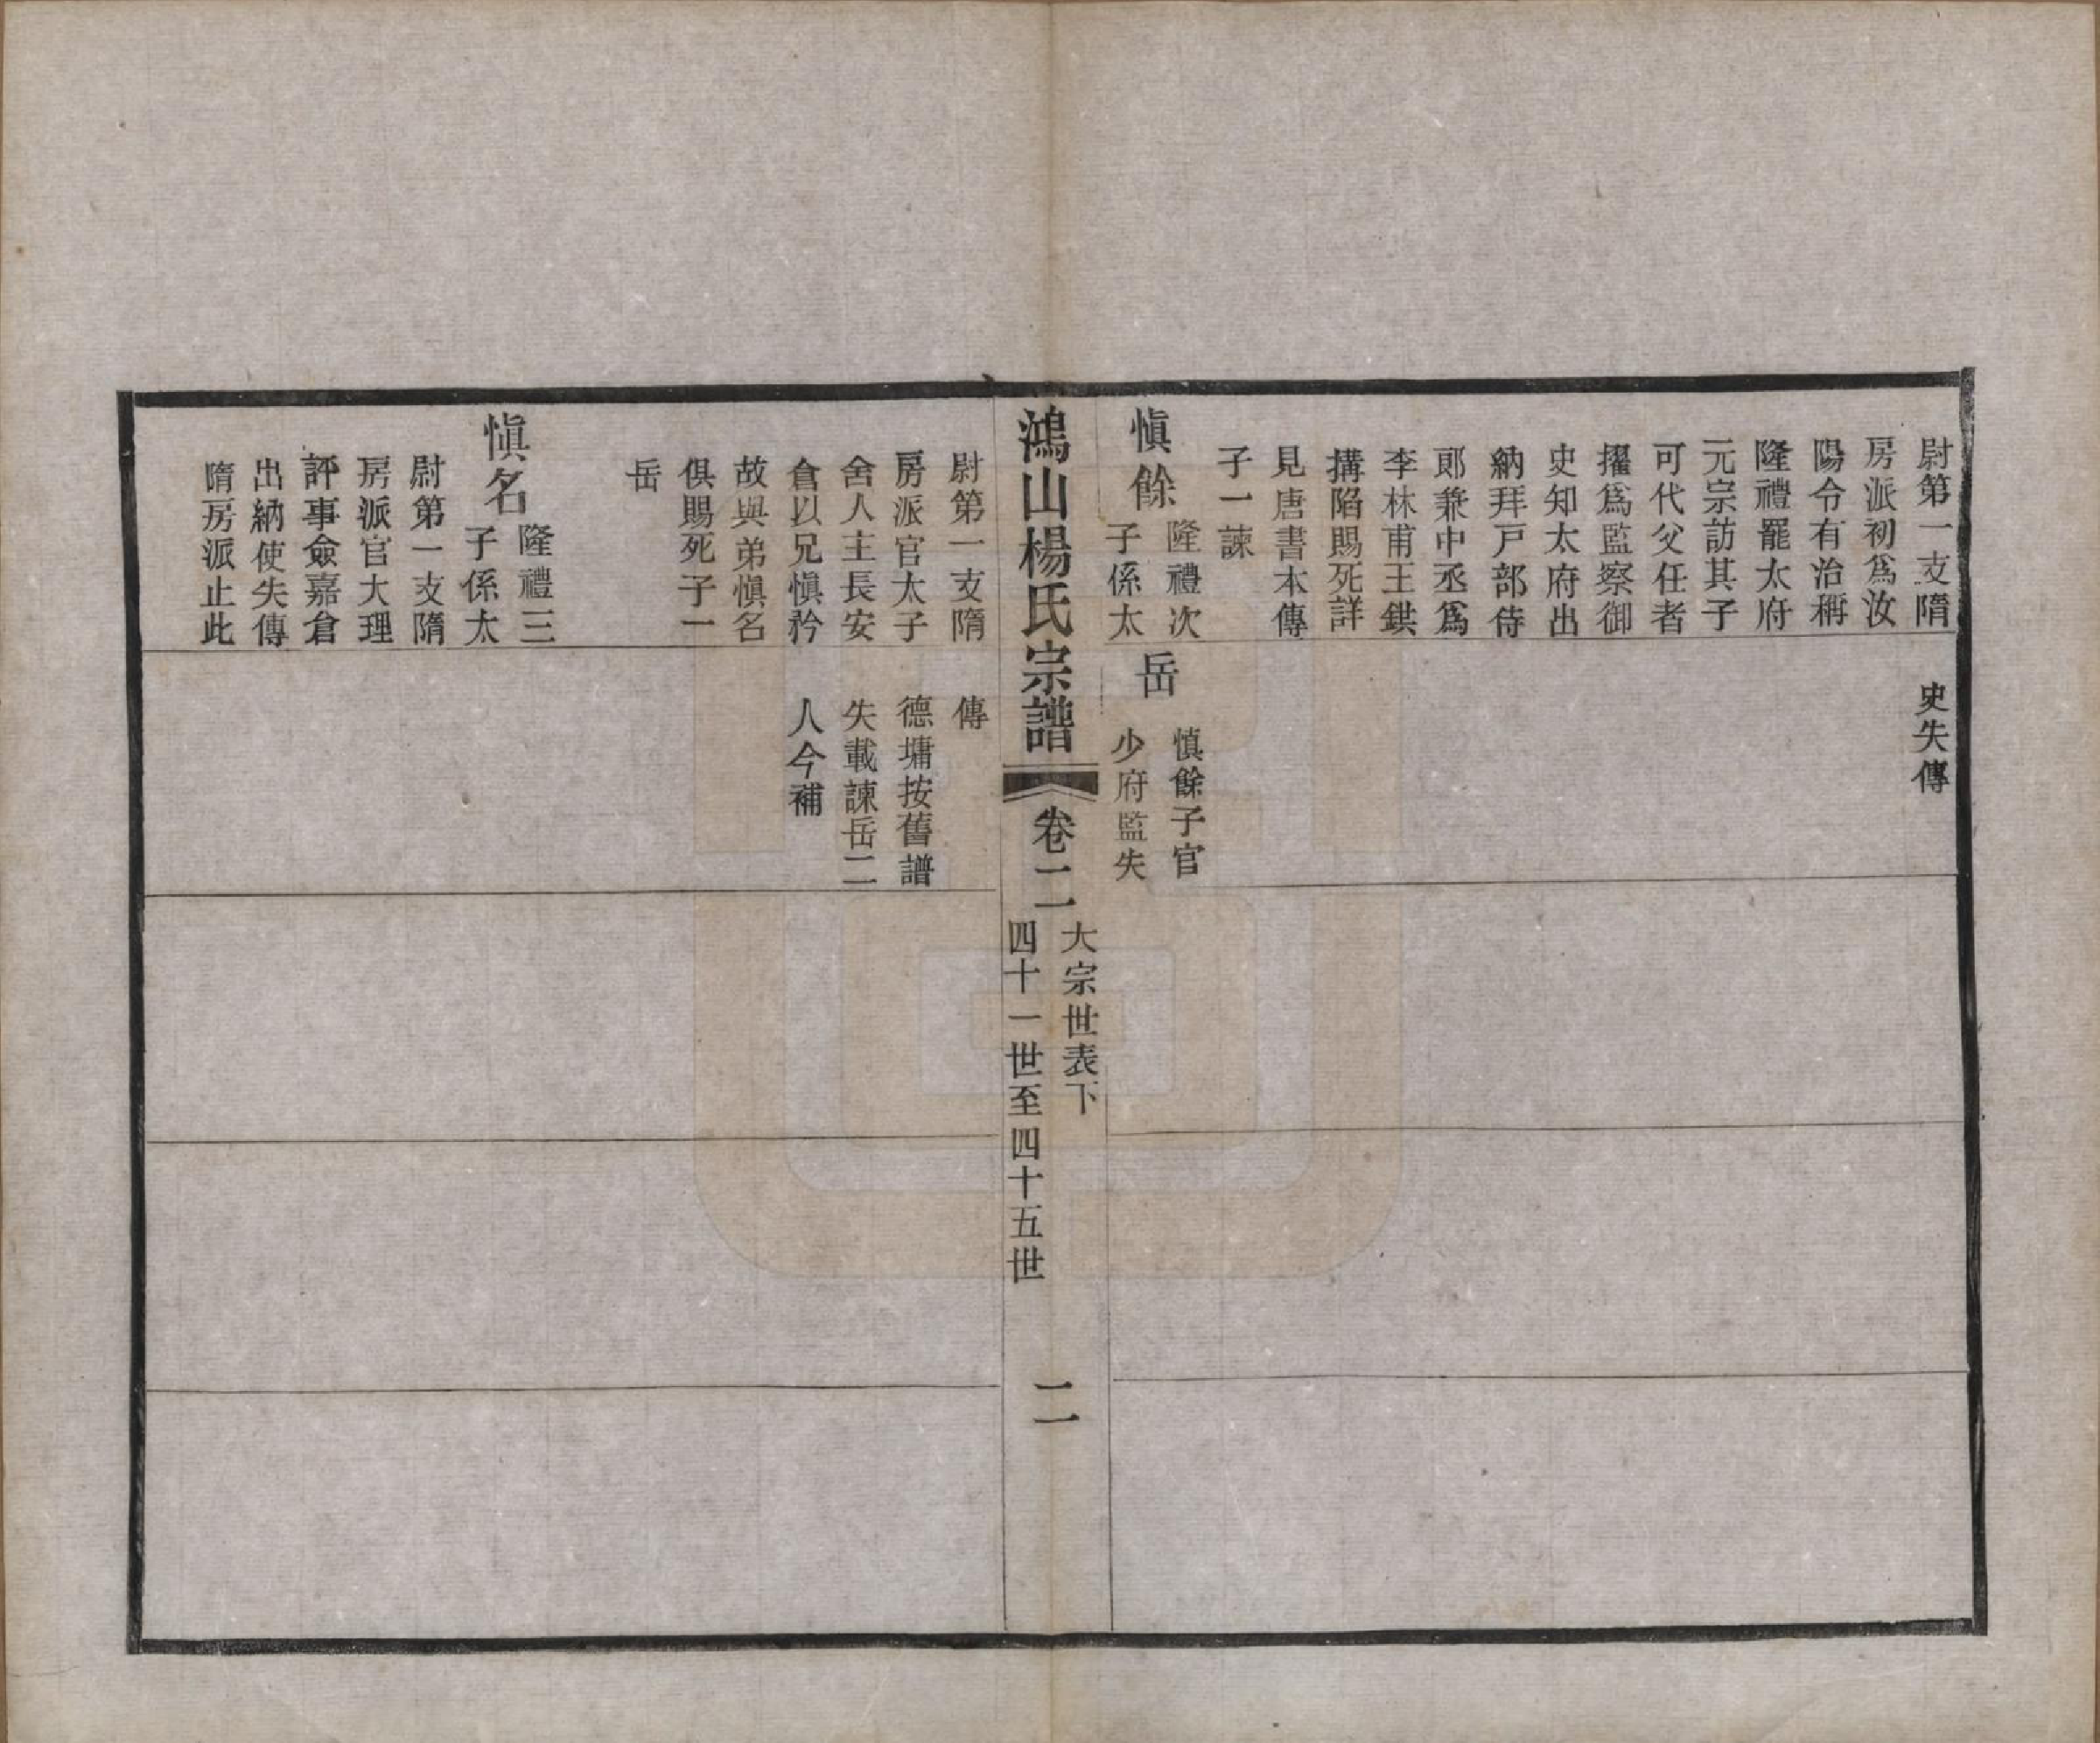 尉第一支隋
房派初爲汝
陽令有治稱
隆禮罷太府
元宗訪其子
可代父任者
擢爲監察御
史知太府出
納拜戸部侍
郎兼中丞爲
李林甫王鉷
搆陷賜死詳
見唐書本傳
子一諫
史失傳
愼餘
隆禮次
子係太
岳
慎餘子官
少府監失
鴻山楊氏宗譜
卷二
大宗世表下
四十一世至四十五世
二
尉第一支隋
房派官太子
舍人主長安
倉以兄愼矜
故與弟愼名
俱賜死子一
岳
傳
德墉按舊譜
失載諫岳二
人今補
愼名
隆禮三
子係太
尉第一支隋
房派官大理
評事僉嘉倉
出納使失傳
隋房派止此